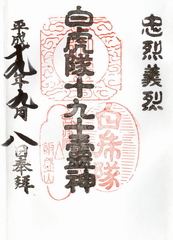 忠烈義烈
白虎隊十九士霊神
白虎隊
飯盛山
平成十九年九月八日奉拜